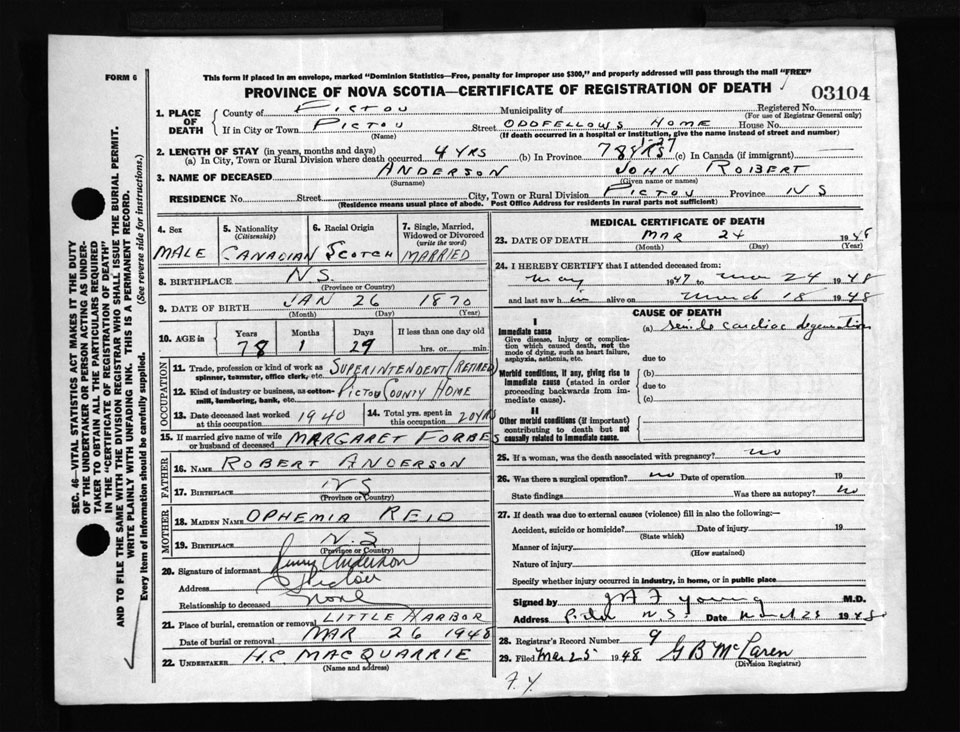 This form if placed in an envelope, marked "Dominion Statistics—Free, penalty for improper use $300," and properly addressed will pass through the mail "FREE"
FORM 6
PROVINCE OF NOVA SCOTIA—CERTIFICATE OF REGISTRATION OF DEATH
03104
1. PLACE OF DEATH
County of PICTOU Municipality of Registered No.
(For use of Registrar General only)
If in City or Town PICTOU Street ODDFELLOWS HOME House No.
(Name) (If death occurred in a hospital or institution, give the name instead of street and number)
2. LENGTH OF STAY (in years, months and days)
(a) In City, Town or Rural Division where death occurred 4 YRS (b) In Province 78 YRS (c) In Canada (if immigrant)
3. NAME OF DECEASED ANDERSON JOHN ROBERT
(Surname) (Given name or names)
RESIDENCE No. Street City, Town or Rural Division PICTOU Province N S
(Residence means usual place of abode. Post Office Address for residents in rural parts not sufficient)
4. Sex
MALE
5. Nationality (Citizenship)
CANADIAN
6. Racial Origin
SCOTCH
7. Single, Married, Widowed or Divorced (write the word)
MARRIED
8. BIRTHPLACE N.S.
(Province or Country)
9. DATE OF BIRTH JAN 26 1870
(Month) (Day) (Year)
10. AGE in Years Months Days If less than one day old
78 1 29 hrs. or min.
OCCUPATION
11. Trade, profession or kind of work as spinner, teamster, office clerk, etc. SUPERINTENDENT (RETIRED)
12. Kind of industry or business, as cotton-mill, lumbering, bank, etc. PICTOU COUNTY HOME
13. Date deceased last worked at this occupation 1940
14. Total yrs. spent in this occupation 20 YRS
15. If married give name of wife or husband of deceased MARGARET FORBES
FATHER
16. NAME ROBERT ANDERSON
17. BIRTHPLACE NS
(Province or Country)
MOTHER
18. MAIDEN NAME OPHEMIA REID
19. BIRTHPLACE N.S
(Province or Country)
20. Signature of informant Anderson
Address
Relationship to deceased none
21. Place of burial, cremation or removal LITTLE HARBOR
Date of burial or removal MAR 26 1948
22. UNDERTAKER H.S. MACQUARRIE
(Name and address)
MEDICAL CERTIFICATE OF DEATH
23. DATE OF DEATH MAR 24 1948
(Month) (Day) (Year)
24. I HEREBY CERTIFY that I attended deceased from:
may 1947 to mar 24 1948
and last saw h im alive on March 18 1948
CAUSE OF DEATH
I
Immediate cause
Give disease, injury or complication which caused death, not the mode of dying, such as heart failure, asphyxia, asthenia, etc.
(a) senile cardiac degeneration
due to
Morbid conditions, if any, giving rise to immediate cause (stated in order proceeding backwards from immediate cause).
(b)
due to
(c)
II
Other morbid conditions (if important) contributing to death but not causally related to immediate cause.
25. If a woman, was the death associated with pregnancy? no
26. Was there a surgical operation? no Date of operation 19
State findings Was there an autopsy? no
27. If death was due to external causes (violence) fill in also the following:—
Accident, suicide or homicide? Date of injury 19
(State which)
Manner of injury
(How sustained)
Nature of injury
Specify whether injury occurred in industry, in home, or in public place
Signed by Young M.D.
Address N.S. Date March 25 1948
28. Registrar's Record Number 9
29. Filed Mar 25 1948 G B McLaren
(Division Registrar)
F.Y.
SEC. 46—VITAL STATISTICS ACT MAKES IT THE DUTY
OF THE UNDERTAKER OR PERSON ACTING AS UNDER-
TAKER TO OBTAIN ALL THE PARTICULARS REQUIRED
IN THE "CERTIFICATE OF REGISTRATION OF DEATH"
AND TO FILE THE SAME WITH THE DIVISION REGISTRAR WHO SHALL ISSUE THE BURIAL PERMIT.
WRITE PLAINLY WITH UNFADING INK. THIS IS A PERMANENT RECORD.
Every item of information should be carefully supplied. (See reverse side for instructions.)